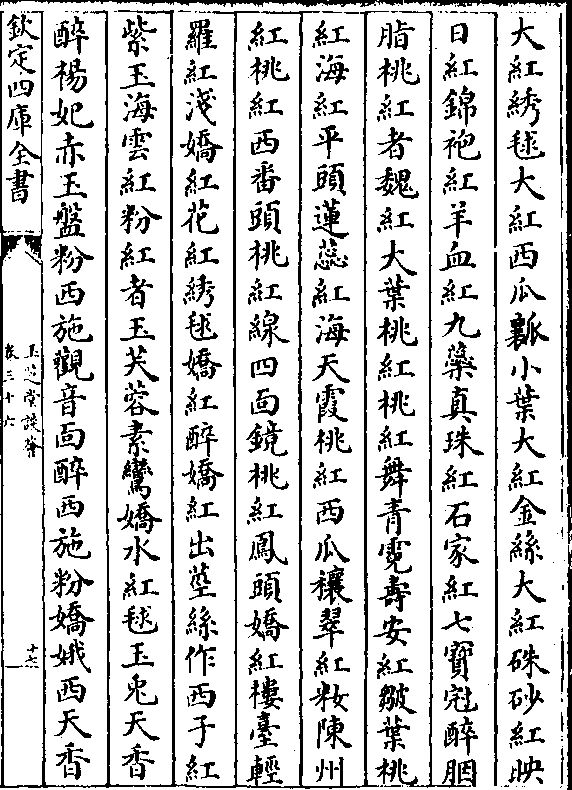 大紅繡毬大紅西瓜瓤小葉大紅金絲大紅硃砂紅映
日紅錦袍紅羊血紅九蘂真珠紅石家紅七寳冠醉胭
脂桃紅者魏紅大葉桃紅桃紅舞青霓壽安紅皺葉桃
紅海紅平頭蓮蕊紅海天霞桃紅西瓜穰翠紅粧陳州
紅桃紅西番頭桃紅線四面鏡桃紅鳳頭嬌紅樓臺輕
羅紅淺嬌紅花紅綉毬嬌紅醉嬌紅出莖絲作西子紅
紫玉海雲紅粉紅者玉芙蓉素鸞嬌水紅毬玉兎天香
醉楊妃赤玉盤粉西施觀音面醉西施粉嬌娥西天香
欽定四庫全書
玉芝堂談薈
卷三十六
十七